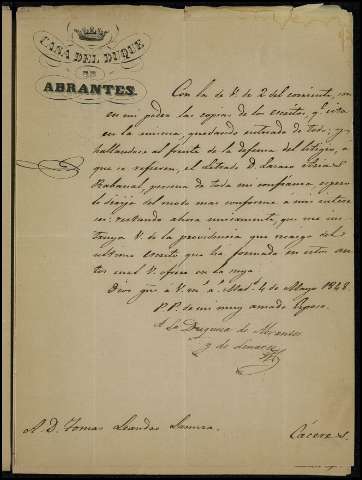 CASA DEL DUQUE
DE
ABRANTES.
Con la de V. de 2 del corriente, son
en mi poder las copias de los escritos, q.e cita
en la misma, quedando enterada de todo; y
hallandose al frente de la defensa del litigio, a
que se refieren, el letrado D. Lazaro
Rabanal, persona de toda mi confianza espero
lo dirija del modo mas conforme a mis intere
ses: restando ahora unicamente, que me ins
truya V. de la providencia que recaiga del
ultimo escrito que ha formado en estos au
tos cual V. ofrece en la suya.
Dios gue. a V. m.s a.s Mad.d 4 de Mayo 1848
P. P. de mi muy amado Esposo.
La Duquesa de Abrantes
y de Linares
A D. Tomas Leandro
Caceres.